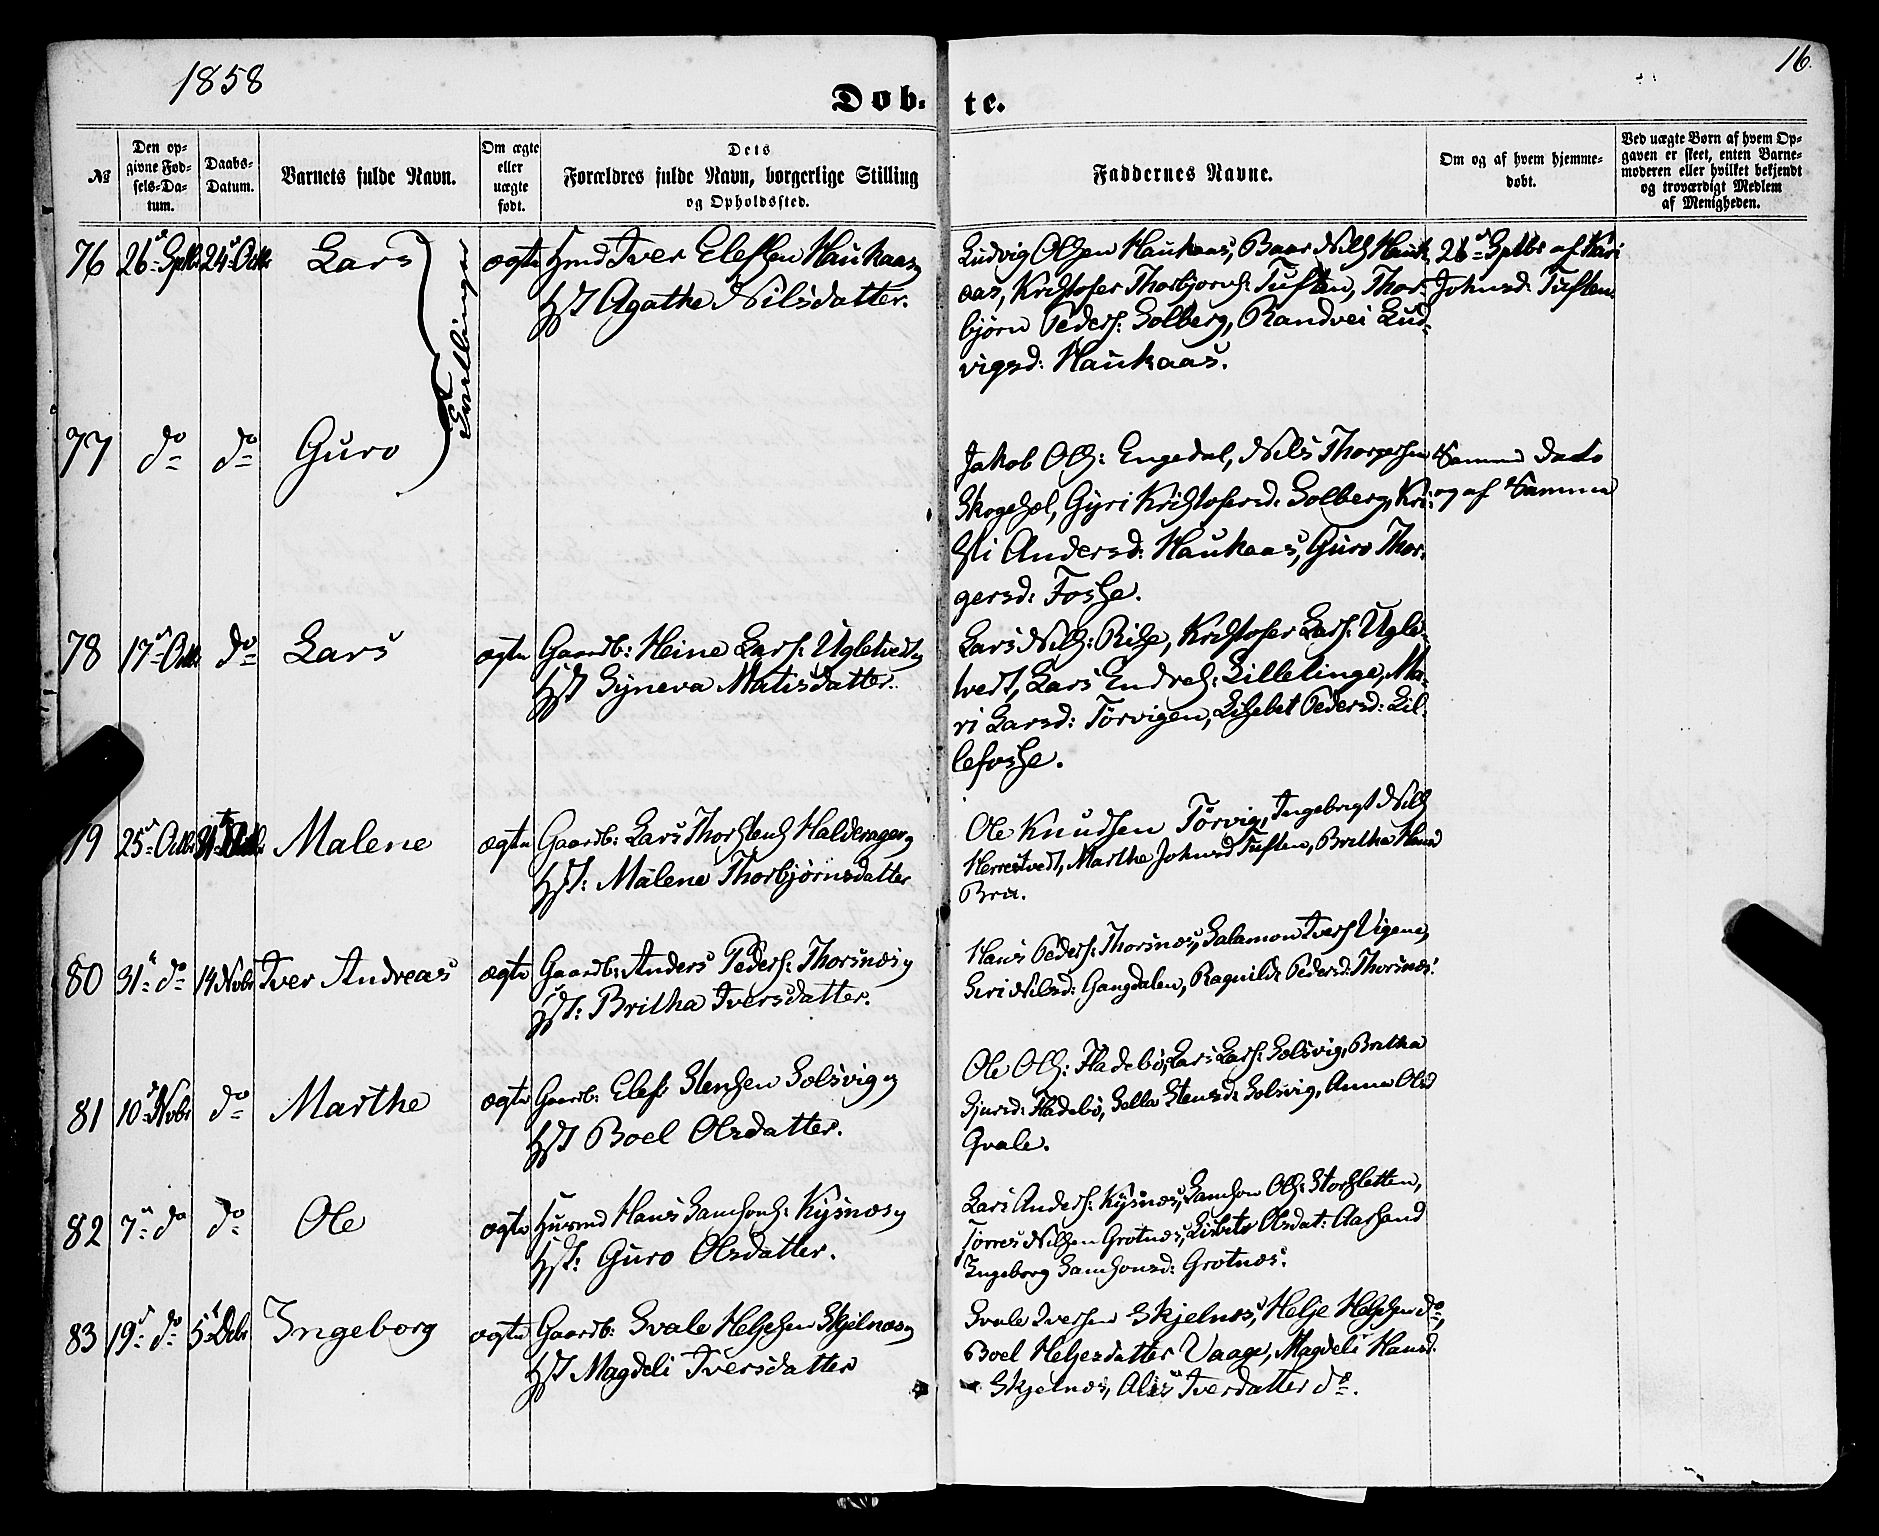 1858
16.
Døb-te.
№
Den opgivne Fødsels-Datum.
Daabs-Datum.
Barnets fulde Navn.
Om ægte eller uægte født.
Dets Forældres fulde Navn, borgerlige Stilling og Opholdssted.
Faddernes Navne.
Om og af hvem hjemmedøbt.
Ved uægte Børn af hvem Opgaven er skeet, enten Barnemoderen eller hvilket bekjendt og troværdigt Medlem af Menigheden.
76 26 Sptbr 24 Octbr Lars ægte Hmd Iver Elefsen Haukaas og
Hst Agathe Nilsdatter.
Ludvig Olsen Haukaas, Baar Nils: Hauk-
aas, Kristofer Thorbjørns: Tuften, Thor-
bjørn Peders: Solberg, Randvei Lud-
vigsd: Haukaas.
26 Sptbr af Kari
Johnsd: Tuften
Tvillinger
77 do do Guro
Jakob Ols: Engedal, Nils Thorgersen
Skogesel, Gyri Kristofersd: Solberg, Kri-
sti Andersd: Haukaas, Guro Thor-
gersd: Fosse.
Samme Dato
og af Samme
78 17 Octbr do Lars ægte Gaardb: Heine Lars: Ugletvedt og
Hst Syneva Matisdatter.
Lars Nils: Rise, Kristofer Lars: Ugle-
tvedt, Lars Endres: Lillelinge, Ma-
ri Larsd: Tørvigen, Lisebet Pedersd: Lil-
lefosse.
79 25 Octbr 31 Octbr Malene ægte Gaardb: Lars Thorstens: Halderager og
Hst: Malene Thorbjørnsdatter
Ole Knudsen Tørvig, Ingebrigt Nils:
Herrestvedt, Marthe Johnsd Tuften, Britha Hansd
Bru.
80 31 do 14 Nvbr Iver Andreas ægte Gaardb: Anders Peders: Thorsnæs og
Hst: Britha Iversdatter.
Hans Peders: Thorsnæs, Salamon Ivers Vigene,
Siri Nilsd: Gangdalen, Ragnilde Pedersd: Thorsnæs.
81 10 Nvbr do Marthe ægte Gaardb: Elef: Stensen Solsvig og
Hst Boel Olsdatter.
Ole Ols: Fladebø, Lars Lars: Solsvig, Britha
Sjursd: Fladebø, Sella Stensd: Solsvig, Anna Olsd
Qvale.
82 7 do do Ole ægte Husmd Hans Samsons: Kysnæs og
Hst: Guro Olsdatter.
Lars Anders: Kysnæs, Samson Ols: Storsletten,
Torres Nilsen Grotnæs, Lisbeta Olsdat: Aarsand
Ingeborg Samsonsd: Grotnæs.
83 19 do 5 Dcbr Ingeborg ægte Gaardb: Svale Helgesen Skjelnæs og
Hst Magdeli Iversdatter
Svale Iversen Skjelnæs, Helje Helgesen do,
Boel Helgesdatter Vaage, Magdeli Hansd.
Skjelnæs, Alis Iversdatter do.